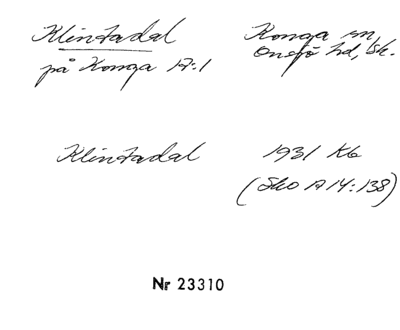 Klintadal
Konga sn,
på Konga 17:1
Onsjö hd, Sk.
Klintadal
1931 Kb
(Sko A 14:138)
Nr 23310